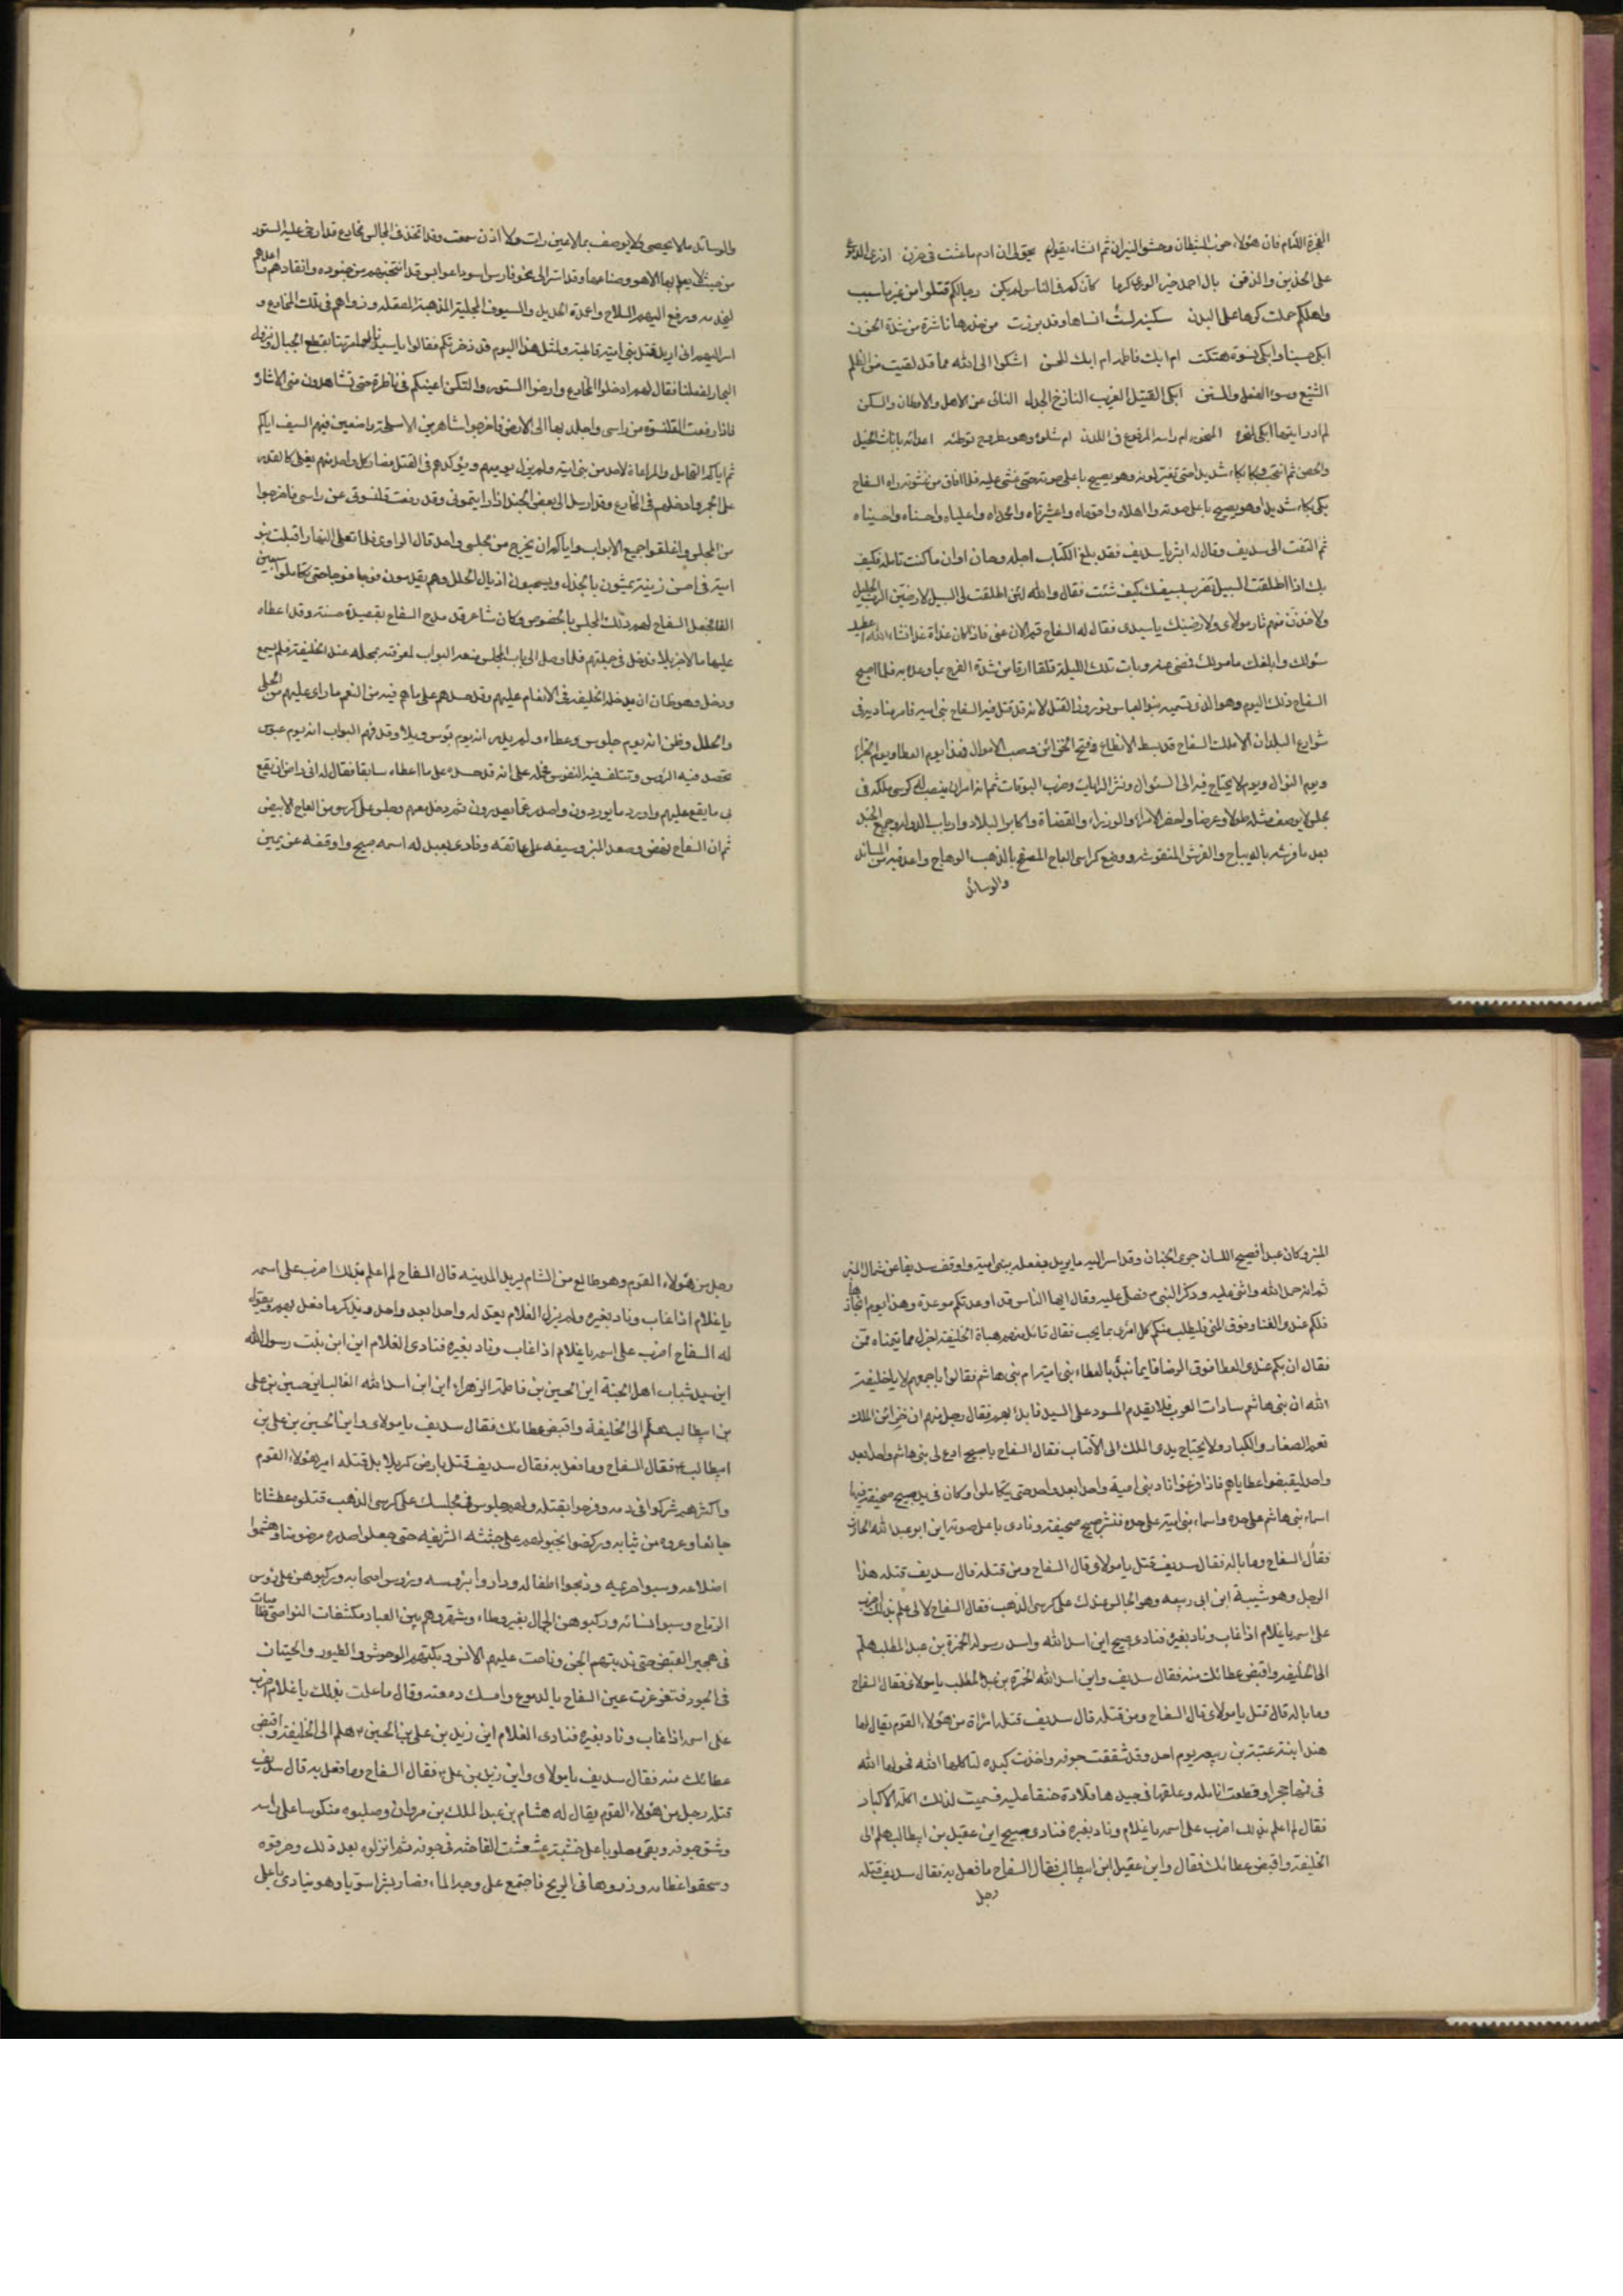 الفجرة اللئام فان هؤلاء حزب الشيطان وحشو النيران ثم انشاء يقول يحق لى ان ادم ما عشت فى حزن اذرى الدموع
على الخدين والذقن يال احمد خير الورى كرما كان كم فى الناس لم يكن رجالكم قتلوا من غير ما سبب
واهلكم حملت كرها على البدن سكينه لست انساها وقد برزت من خدرها ناشرة من شدة الحزن
ابكى حسينا وابكى نسوة هتكت ام ابك فاطمه ام ابك للحسن اشكوا الى الله مما قد لقيت من الظلم
الشنيع وسوء الفعل والمحن ابكى القتيل الغريب النازح الجدل النائى عن الاهل والاوطان والسكن
لم ادر ايهما ابكى لنحره المنحور ام راسه المرفوع فى اللدن ام شلوه وهو مطروح توطئه اعدائه بانات الخيل
والحصن ثم انتحب وبكا بكاء شديدا حتى تغير لونه وهو يصيح باعلى صوته حتى غشى عليه فلما افاق من غشوته راه السفاح
بكى بكاء شديدا وهو يصيح باعلى صوته وا اهلاه واقوماه واعشيرتاه وامحمداه واعلياه واحسناه واحسيناه
ثم التفت الى سديف وقال له ابشر يا سديف فقد بلغ الكتاب اجله وحان اوان ما كنت تامله فكيف
بك اذا اطلقت السبيل تضرب بسيفك كيف شئت فقال والله لئن اطلقت لى السبيل لارضين الرب الجليل
ولاخذن منهم ثار مولاى ولارضينك يا سيدى فقال له السفاح قم الان عنى فاذا كان غداة غد انشاء الله اعطيك
سئولك وابلغك مامولك فمضى عنه وبات تلك الليلة قلقا ارقا من شدة الفرح بما وعده به فلما اصبح
السفاح ذلك اليوم وهو الذى تسميه بنوا العباس نوروز القتل لانه قد قتل فيه السفاح بنى اميه فامر مناديه فى
شوارع البلدان الا ملك السفاح قد بسط الانطاع وفتح الخزائن وصب الاموال فهذا يوم العطا ويوم الجزاء
ويوم النوال ويوم لا يحتاج فيه الى السئوال ونشر الرايات وضرب البوقات ثم انه امر ان ينصب له كرسى ملكه فى
مجلس لا يوصف مثله طولا وعرضا واحضر الامراء والوزراء والقضاة واكابر البلاد وارباب الدولة وجميع الجند
بعد ما فرشه بالديباج والفرش المنقوشه ووضع كراسى العاج المصفح بالذهب الوهاج واعد فيه من المساند
والوسائد
والوسائد ما لا يحصى ولا يوصف بما لا عين رات ولا اذن سمعت وقد اتخذ فى المجالس مخادع قد ارخى عليه الستور
من حيث لا يعلم بها الا هو وصناعها وقد اسر الى نحو فارس اسود اعوابى وقد انتخبهم من جنوده وانقادهم واعدهم
لخدمته ورفع اليهم السلاح واعمدة الحديد والسيوف المجلية المذهبة المصقله وزواهم فى تلك المخادع و
اسر اليهم انى اريد قتل بنى امية قاطبة ولمثل هذا اليوم قد ذخرتكم فقالوا يا سيدنا لو امرتنا بقطع الجبال ونزول
البحار لفعلنا فقال لهم ادخلوا المخادع وارخوا الستور والتكن اعينكم فى ناظرة حتى تشاهدون منى الاشارة
فاذا رفعت القلنسوة من راسى واجلد بها الى الارض فاخرجوا شاهرين الاسلحة واضعين فيهم السيف اياكم
ثم اياكم التحامل والمراعاة لاحد من بنى اميه ولم يزل يوصيهم ويؤكدهم فى القتل فصار كل واحد منهم يغلى كالقدر
على الجمر وادخلهم فى المخادع وقد ارسل الى بعض الجند اذا رايتمونى وقد رفعت قلنسوتى عن راسى فاخرجوا
من المجلس واغلقوا جميع الابواب واياكم ان يخرج من مجلسى واحد قال الراوى فلما تعلى النهار اقبلت بنو
امية فى احسن زينة يمشون بالجذل ويسحبون اذيال الحلل وهم يقدمون فوجا فوجا حتى تكاملوا سبعين
الفا فجعل السفاح لهم ذلك المجلس بالخصوص وكان شاعر قد مدح السفاح بقصيدة حسنة وقد اعطاه
عليها مالا جزيلا فدخل فى جملتهم فلما وصل الى باب المجلس منعه البواب لمعرفته بمحله عند الخليفة فلم يسمع
ودخل وهو ظان ان يدخله الخليفة فى الانعام عليهم وقد حسدهم على ما هم فيه من النعم ما راى عليهم من الحلى
والحلل وظن انه يوم جلوس وعطاء ولم يدر انه يوم بؤس وبلاء وقد فهم البواب انه يوم عبوس
تحصد فيه الرؤس وتتلف فيه النفوس فحمله على انه قد حسده على ما اعطاه سابقا فقال له انى راض ان يقع
بى ما يقع عليهم واورد ما يوردون واصدر عما يصدرون ثم دخل معهم وجلس على كرسى من العاج الابيض
ثم ان السفاح نهض وصعد المنبر وسيفه على عاتقه ونادى بعبد له اسمه صبيح واوقفه عن يمين
المنبر وكان عبدا فصيح اللسان جرى الجنان وقد اسر اليه ما يريد بفعله ببنى امية واوقف سديفا عن شمال المنبر
ثم انه حمد الله واثنى عليه وذكر النبى فصلى عليه وقال ايها الناس قد اوعدتكم موعدة وهذا يوم انجازها
فلكم عندى الغنا وفوق المنى فليطلب منكم كل امرء بما يحب فقال قائل منهم هباة الخليفة اجزل مما تمناه ممن
فقال ان بكم عندى العطا فوق الرضا فايما نبدأ بالعطاء بنى امية ام بنى هاشم فقالوا باجمعهم لا يا خليفة
الله ان بنى هاشم سادات العرب فلا يقدم المسود على السيد فابدأ بهم فقال رجل منهم ان خزائن الملك
تعم الصغار والكبار ولا يحتاج يدى الملك الى الاقتاب فقال السفاح يا صبيح ادع لى بنى هاشم واحدا بعد
واحد ليقبضوا عطاياهم فاذا فرغوا ناد بنى امية واحدا بعد واحد حتى يتكاملوا وكان فى يد صبيح صحيفة فيها
اسماء بنى هاشم على حده واسماء بنى امية على حده فنشر صبيح صحيفته ونادى باعلى صوته اين ابو عبد الله الحارث
فقال السفاح وما باله فقال سديف قتل يا مولاى قال السفاح ومن قتله قال سديف قتله هذا
الرجل وهو شيبة ابن ابى ربيعه وهو الجالس عندك على كرسى الذهب فقال السفاح لا لى علم بذلك اضرب
على اسمه يا غلام اذا غاب وناد بغيره فنادى صبيح اين اسد الله واسد رسوله الحمزة بن عبد المطلب هلم
الى الخليفه واقبض عطائك منه فقال سديف واين اسد الله الحمزة بن عبد المطلب يا مولاى فقال السفاح
وما باله قال قتل يا مولاى قال السفاح ومن قتله قال سديف قتله امراة من هؤلاء القوم يقال لها
هند ابنة عتبة بن ربيعه يوم احد وقد شققت جوفه واخذت كبده لتاكلها الله فحولها الله
فى فمها حجرا وقطعت انامله وعلقها فى جيدها قلادة حنقا عليه فسميت لذلك اكلة الاكباد
فقال لم اعلم بذلك اضرب على اسمه يا غلام وناد بغيره فنادى صبيح اين عقيل بن ابيطالب هلم الى
الخليفة واقبض عطائك فقال واين عقيل ابن ابيطالب فقال السفاح ما فعل به فقال سديف قتله
رجل
رجل من هؤلاء القوم وهو طالع من الشام يريد المدينه قال السفاح لم اعلم بذلك اضرب على اسمه
يا غلام اذا غاب وناد بغيره ولم يزل الغلام يعد له واحدا بعد واحد ويذكر ما فعل بهم ويقول
له السفاح اضرب على اسمه يا غلام اذا غاب وناد بغيره فنادى الغلام اين ابن بنت رسول الله
اين سيد شباب اهل الجنة اين الحسين بن فاطمة الزهراء اين ابن اسد الله الغالب اين حسين بن على
بن ابيطالب هلم الى الخليفة واقبض عطائك فقال سديف يا مولاى واين الحسين بن على بن
ابيطالب فقال السفاح وما فعل به فقال سديف قتل بارض كربلا بل قتله امير هؤلاء القوم
واكثرهم شركوا فى دمه وفرحوا بقتله ولهم جلوس فى مجلسك على كرسى الذهب قتلوه عطشانا
جائعا وعروه من ثيابه وركضوا الخيولهم على جثته الشريفه حتى جعلوا صدره مرضوضا وهشموا
اضلاعه وسبوا حريمه وذبحوا اطفاله وداروا برؤسه ورؤوس اصحابه وركبوهن على رؤس
الرماح وسبوا نسائه وركبوهن الجمال بغير وطاء وشهروهم بين العباد مكشفات النواصى ظاميات
فى هجير القيض حتى ندبتهم الجن وناحت عليهم الانس وبكتهم الوحوش والطيور والحيتان
فى البحور فتغرغرت عين السفاح بالدموع وامسك دمعته وقال ما علمت بذلك يا غلام اضرب
على اسمه اذا غاب وناد بغيره فنادى الغلام اين زيد بن على بن الحسين هلم الى الخليفة واقبض
عطائك منه فقال سديف يا مولاى واين زيد بن على فقال السفاح وما فعل به قال سديف
قتله رجل من هؤلاء القوم يقال له هشام بن عبد الملك بن مروان وصلبوه منكوسا على راسه
وشق جوفه وبقى مصلوبا على خشبة عشعشت الفاخته فى جوفه ثم انزلوه بعد ذلك وحرقوه
وسحقوا عظامه وذروها فى الريح فاجتمع على وجه الماء فصار بشرا سويا وهو ينادى باعلى